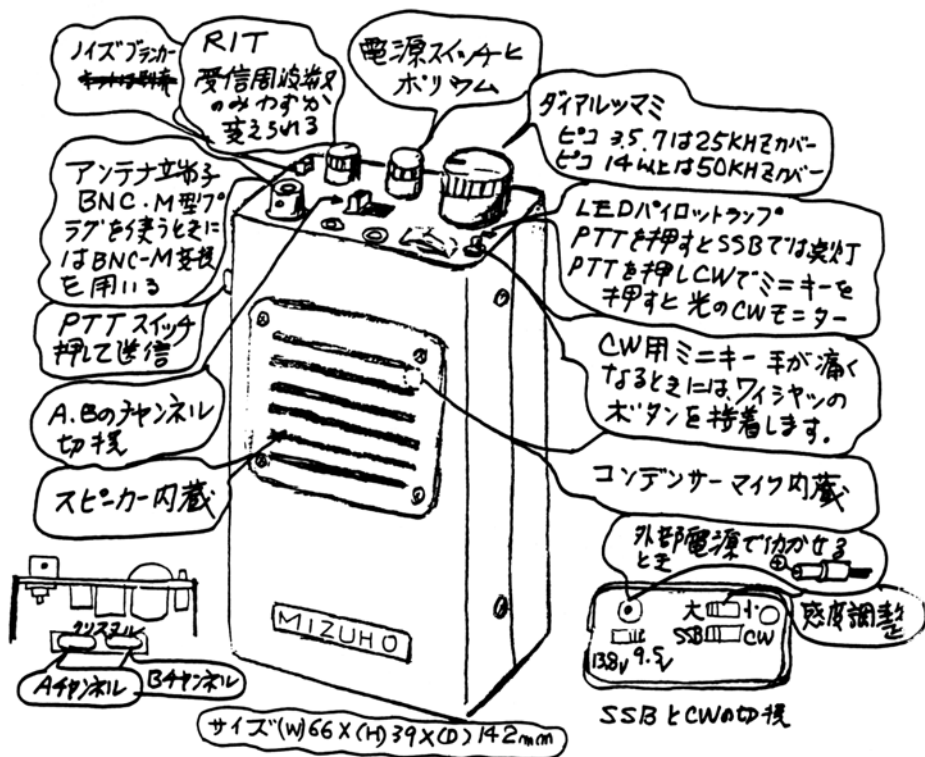 ノイズブランカー
RIT
受信周波数
のみわずか
変えられる
電源スイッチと
ボリウム
ダイアルツマミ
ピコ 3.5.7は25KHZカバー
ピコ 14以上は50KHZカバー
アンテナ端子
BNC.M型プ
ラグを使うときに
はBNC-M変換
を用いる
LEDパイロットランプ
PTTを押すとSSBでは点灯
PTTを押しCWでミニキーを
押すと光のCWモニター
PTTスイッチ
押して送信
CW用ミニキー 手が痛く
なるときには、ワイシャツの
ボタンを接着します。
A.Bのチャンネル
切換
スピーカー内蔵
コンデンサーマイク内蔵
外部電源で働かせる
とき
感度調整
大 小
SSB CW
13.8V 9.5V
SSBとCWの切換
クリスタル
Aチャンネル
Bチャンネル
MIZUHO
サイズ(W)66×(H)39×(D)142mm